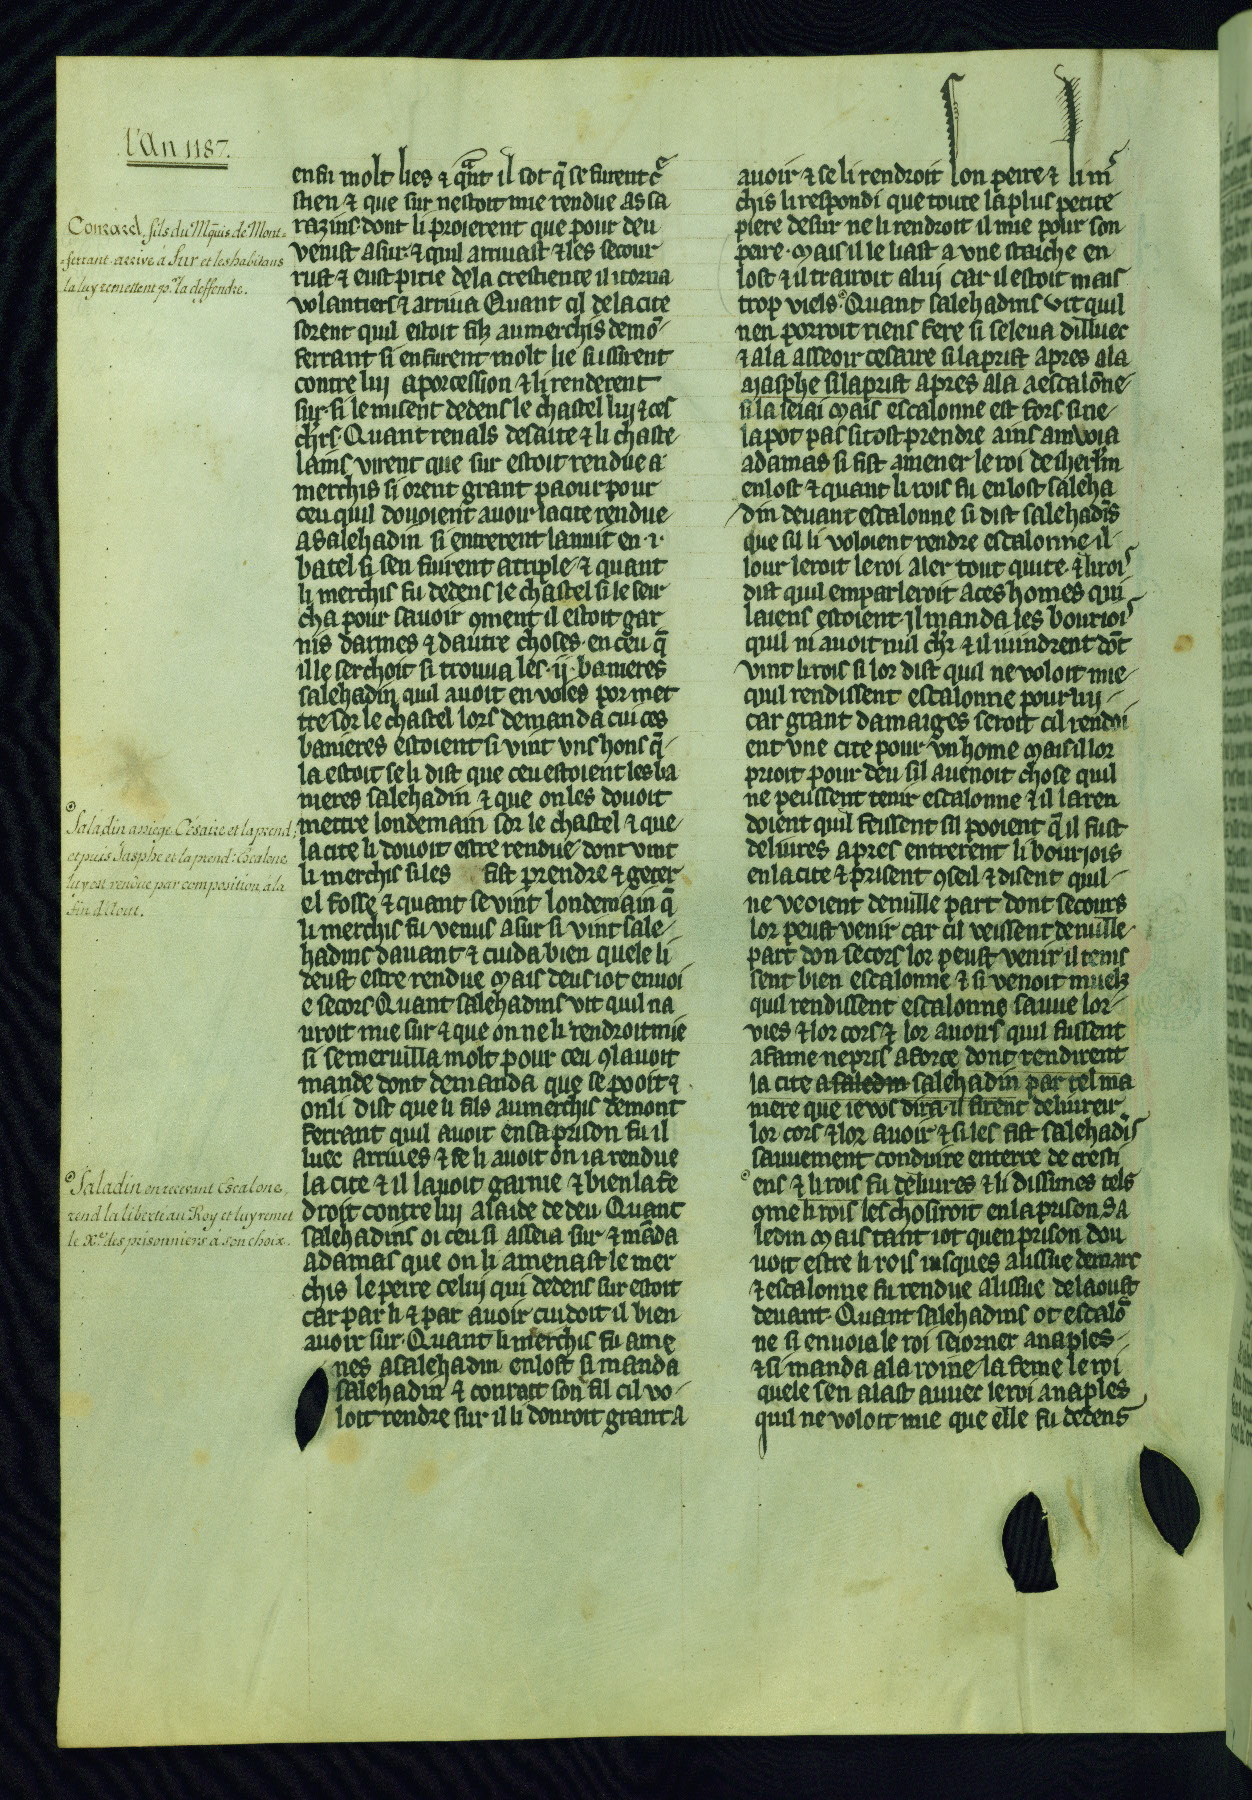 l'An 1187.
Conrard, fils du Mquis de Mont-
ferrant arrive a Sur et les habitans
la luy remettent pr. la deffendre.
Saladin assiege Césaire et la prend;
et puis Jasphe et la prend: Escalone
luy est rendüe par composition, à la
fin d'Aout.
Saladin en recevant Escalone,
rend la liberté au Roy et luy remet
le Xe. des prisonniers à son choix.
en fu molt lies ⁊ qnt il sot q̄ se furent c̄
stien ⁊ que sur nestoit mie rendue as sa
razins dont li proierent que pour deu
venist a sur ⁊ quil arrivast ⁊ les secour
rust ⁊ eust pitie de la crestiente il torna
volantiers ⁊ arriva Quant cil de la cite
sorent quil estoit filz au merchis de mō
ferrant si en furent molt lie si issirent
contre luj a porcession ⁊ li renderent
sur si le misent dedens le chastel luj ⁊ ces
chrs Quant renals de saiite ⁊ li chaste
lains virent que sur estoit rendue a
merchis si orent grant paour pour
ceu quil douoient auoir la cite rendue
a salehadin si entrerent la nuit en .i.
batel si sen fuirent a triple ⁊ quant
li merchis fu dedens le chastel si le seir
cha pour sauoir 9ment il estoit gar
nis darmes ⁊ dautre choses en ceu q̄
ille serchoit si trouua les .ij. banieres
salehadin quil auoit envoies por met
tre sor le chastel lors demanda cui ces
banieres estoient si vint vns hons q̄
la estoit se li dist que ceu estoient les ba
nieres salehadin ⁊ que on les douoit
mettre londemain sor le chastel ⁊ que
la cite li douoit estre rendue dont vint
li merchis si les fist prendre ⁊ geter
el fosse ⁊ quant se vint londemain q̄
li merchis fu venus a sur si vint sale
hadins dauant ⁊ cuida bien quele li
deust estre rendue mais deus iot enuoi
e secors Quant salehadins vit quil na
uroit mie sur ⁊ que on ne li rendroit mie
si semervilla molt pour ceu 9 lauoit
mande dont demanda que se pooit ⁊
on li dist que li fils au merchis de mont
ferrant quil auoit en sa prison fu il
luec arriues ⁊ se li auoit on ia rendue
la cite ⁊ il lauoit garnie ⁊ bien la te
droit contre luj a laide de deu Quant
salehadins oi ceu si asseia sur ⁊ māda
a damas que on li amenast le mer
chis le peire celuj qui dedens sur estoit
car par li ⁊ par auoir cuidoit il bien
auoir sur Quant li merchis fu ame
nes a salehadin en lost si manda
salehadin ⁊ conrait son fil cil vo
loit rendre sur il li donroit grant a
auoir ⁊ se li rendroit son peire ⁊ li m
chis li respondi que toute la plus petite
piere de sur ne li rendroit il mie pour son
peire mais il le liast a vne staiche en
lost ⁊ il trairoit a luj car il estoit mais
trop viels Quant salehadins vit quil
nen porroit riens fere si se leua dilluec
⁊ ala asseoir cesaire si la prist apres ala
a jasphe si la prist apres ala a escalōne
si la seiai mais escalonne est fors si ne
la pot pas si tost prendre ains anvoia
a damas si fist amener le roi de iherlm
en lost ⁊ quant li rois fu en lost saleha
din deuant escalonne si dist salehadis
que sil li voloient rendre escalonne il
lour leroit le roi aler tout quite ⁊ li rois
dist quil emparleroit a ces homes qui
laiens estoient Il manda les bouriois
quil ni auoit nul chr ⁊ il i uindrent dōt
vint li rois si lor dist quil ne voloit mie
quil rendissent escalonne pour luj
car grant damaiges seroit cil rendoi
ent vne cite pour vn home mais il lor
prioit pour deu sil auenoit chose quil
ne peussent tenir escalonne ⁊ il la ren
doient quil feissent sil pooient q̄ il fust
deliures apres entrerent li bourjois
en la cite ⁊ prisent 9seil ⁊ disent quil
ne veoient de nulle part dont secours
lor peust venir car cil veissent de nulle
part don secors lor peust venir il tenis
sent bien escalonne ⁊ si venoit muelz
quil rendissent escalonne sauue lor
vies ⁊ lor cors ⁊ lor auoirs quil fussent
afame ne pris a force dont rendirent
la cite a saledin salehadin par tel ma
niere que ie vos dira il firent deliureir
lor cors ⁊ lor auoir ⁊ si les fist salehadis
sauuement conduire en terre de cresti
ens ⁊ li rois fu deliures ⁊ li dissimes tels
9me li rois les chosiroit en la prison sa
ledin mais tant iot quen prison dou
uoit estre li rois iusques a lissue de marc
⁊ escalonne fu rendue a lissue de laoust
deuant Quant salehadins ot escalō
ne si enuoia le roi seiorner a naples
⁊ si manda a la roine la feme le roi
quele sen alast auuec le roi a naples
quil ne voloit mie que elle fu dedens